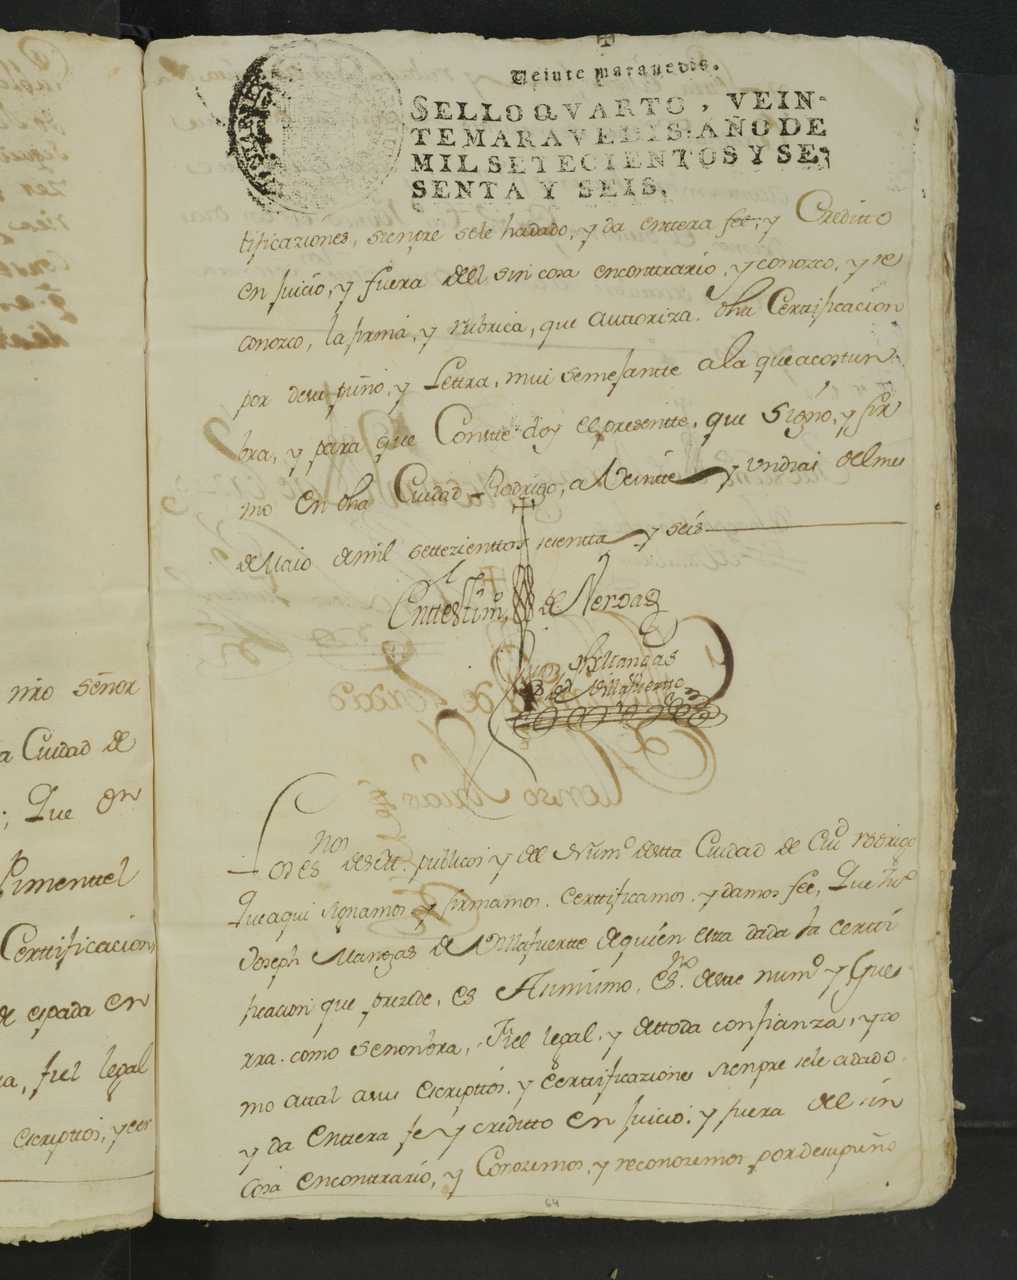 Veinte maravedis.
SELLO QVARTO, VEIN-
TE MARAVEDIS, AÑO DE
MIL SETECIENTOS Y SE-
SENTA Y SEIS.
tificaziones, sienpre sele hadado, y da enttera fee, y Creditto
en juicio, y fuera dell sin cosa enconttrario, y conozco, y re
conozco, la firma, y rubrica, que auttoriza dha Certtificacion
por desu puño, y Lettra, mui semejantte ala que acostun
bra, y para que Constte doy el presentte, que Signo, y fir
mo en dha Ciudad Rodrigo, a Veintte y un dias del mes
de Maio de mil settezienttos sesentta y seis
En ttesttimº de Verdad
Mangas
de Villafuertte
Los es.nos desta publicos y del Numº destta Ciudad de Ciud Rodrigo
Que aqui signamos y firmamos, certtificamos, y damos fee, Que
Joseph Mangas de Villafuertte de quien estta dada la certti
ficacion que prezede, es Asimismo, es.no destte numº y Gue
rra, como se nonbra, Fiel legal, y de ttoda confianza, y co
mo attal asus escripttos, y certtificaziones sienpre sele adado
y da enttera fe y creditto en juicio, y fuera del sin
cosa enconttrario, y Conozemos, y reconozemos por desu puño
64
nro señor
a Ciudad de
; Que en
Pimenttel
Certtificacion,
de espada en
ra, fiel legal
escripttos, y cer